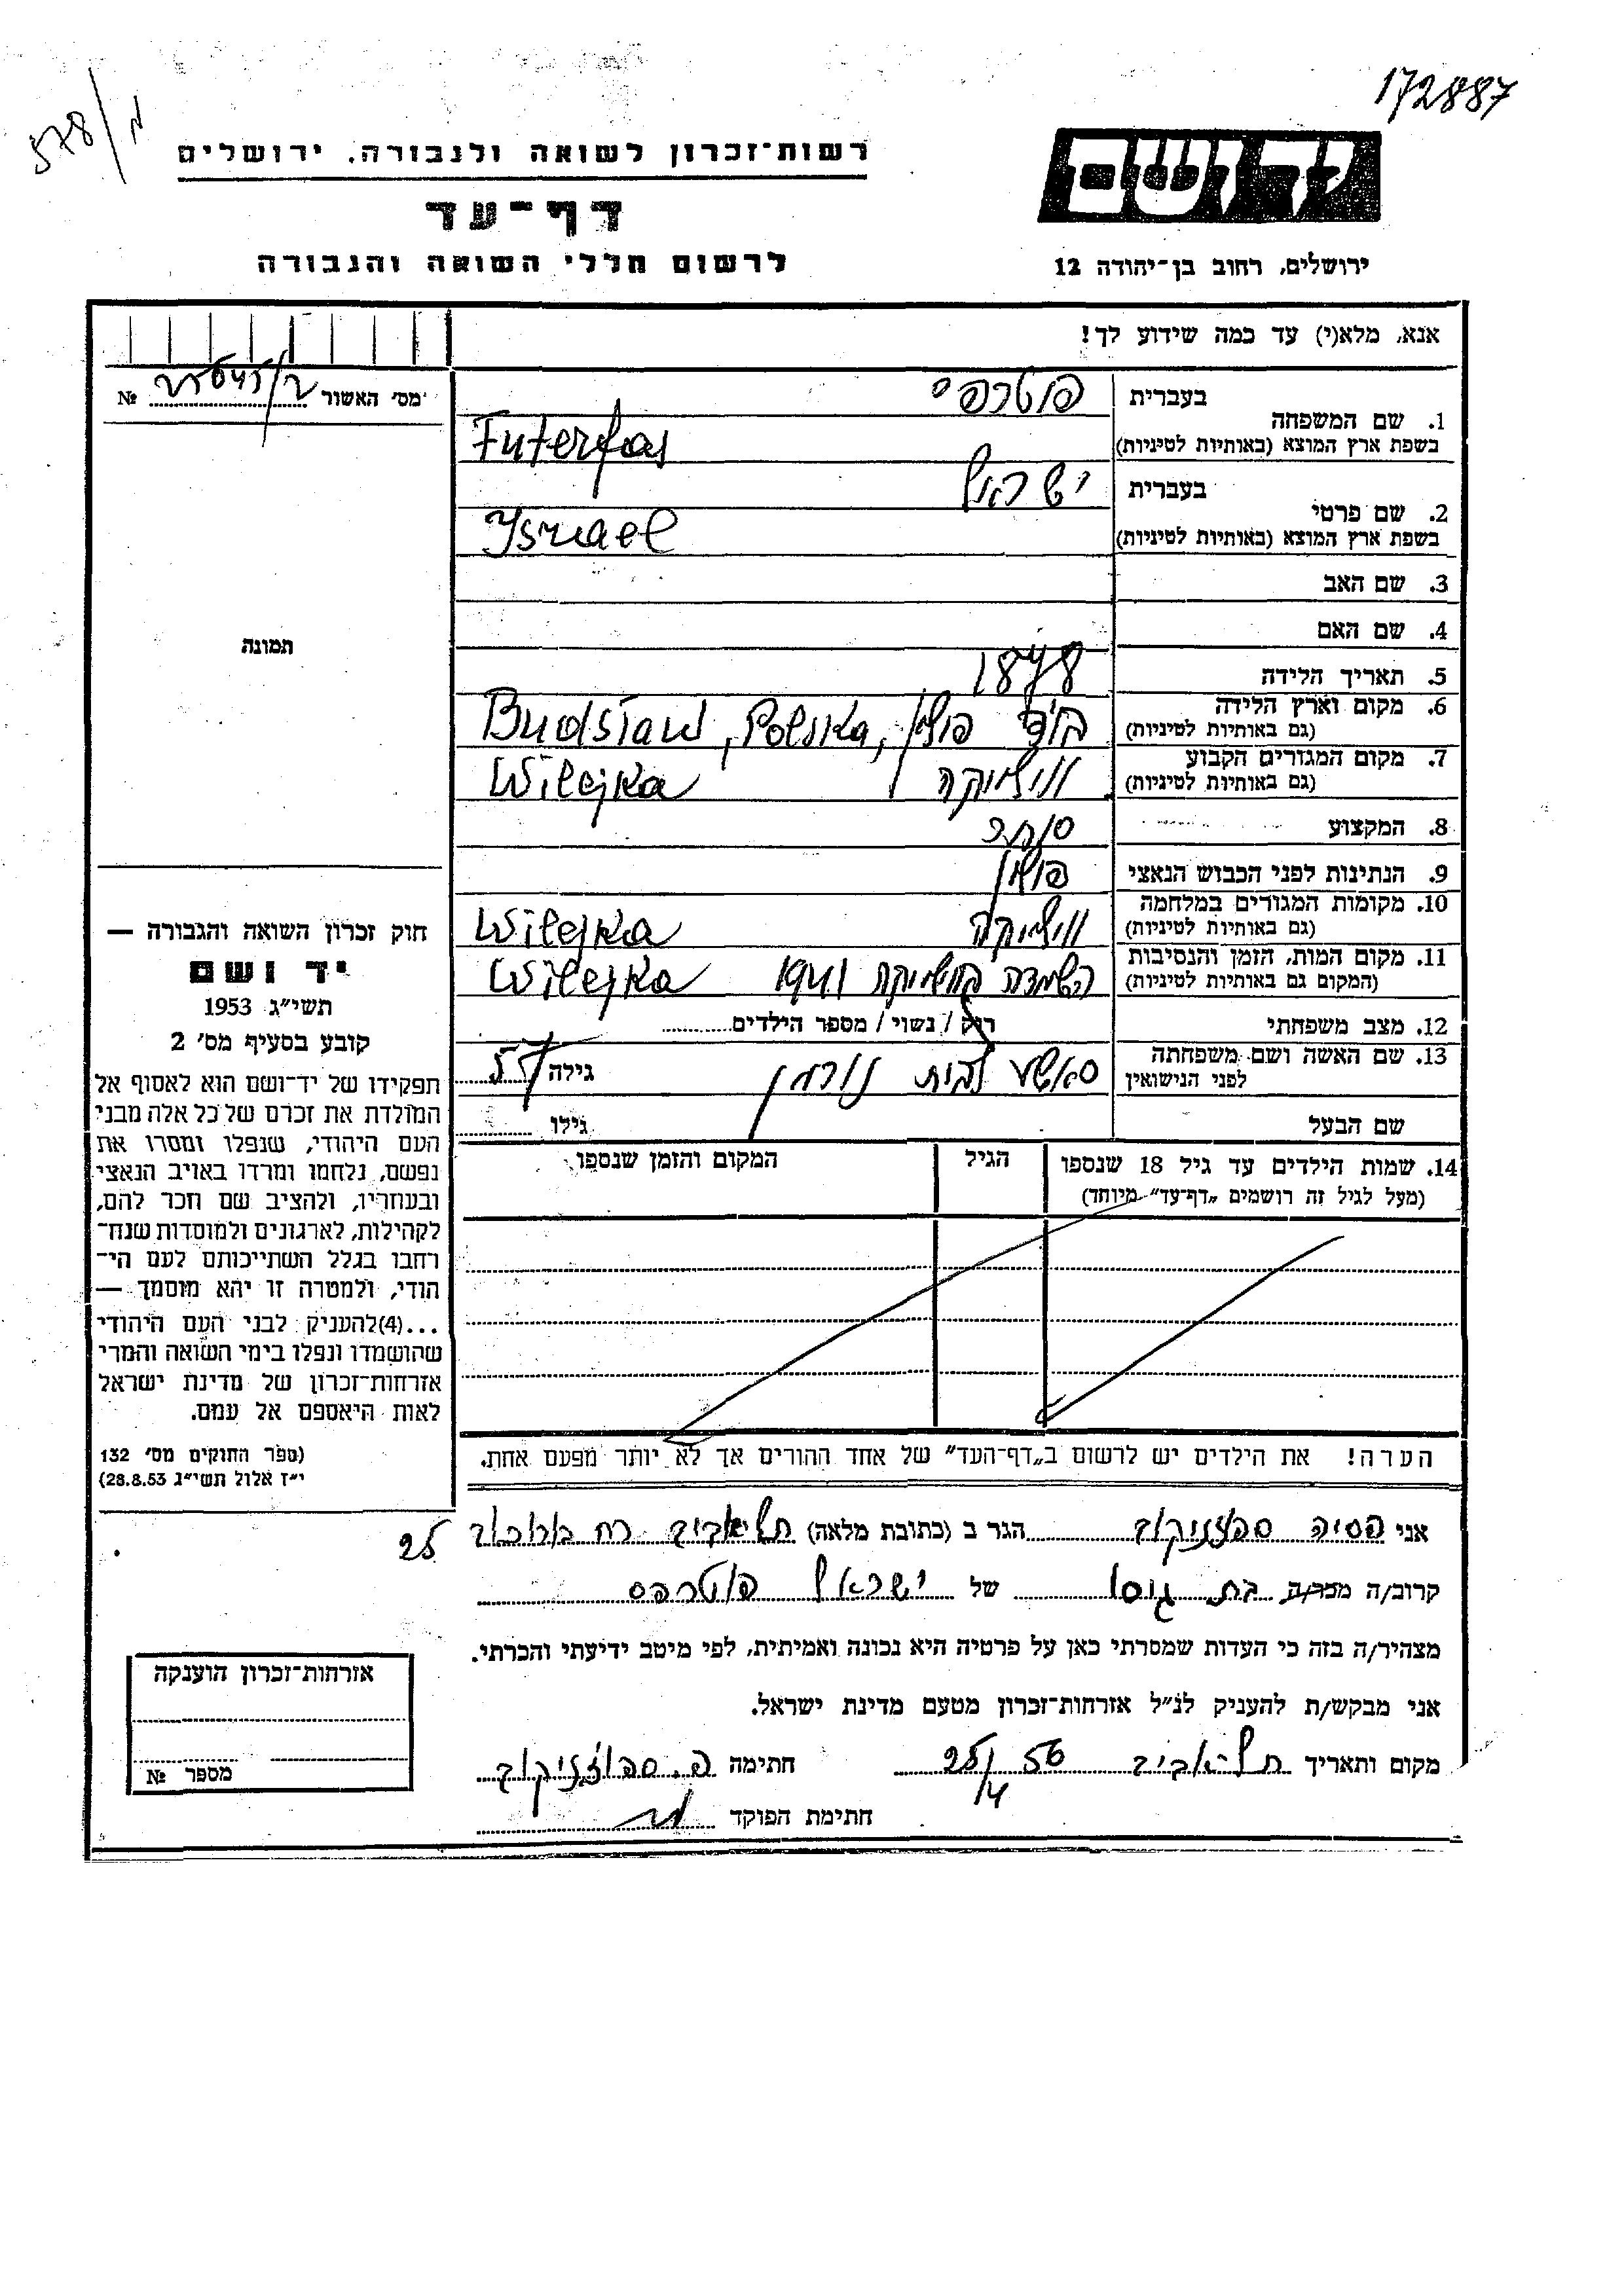 172887
578/מ
יד ושם
רשות־זכרון לשואה ולגבורה, ירושלים
דף־עד
ירושלים, רחוב בן־יהודה 12
לרשום חללי השואה והגבורה
אנא, מלא(י) עד כמה שידוע לך!
מס׳ האשור №
1. שם המשפחה
בעברית
Futerfas
בשפת ארץ המוצא (באותיות לטיניות)
2. שם פרטי
בעברית ישראל
Ysrael
בשפת ארץ המוצא (באותיות לטיניות)
3. שם האב
4. שם האם
תמונה
5. תאריך הלידה 1878
6. מקום וארץ הלידה פולין Budsław, Polska,
(גם באותיות לטיניות)
7. מקום המגורים הקבוע ווילייקה Wilejka
(גם באותיות לטיניות)
8. המקצוע סוחר
9. הנתינות לפני הכבוש הנאצי פולין
10. מקומות המגורים במלחמה ווילייקה Wilejka
(גם באותיות לטיניות)
11. מקום המות, הזמן והנסיבות 1941 Wilejka
(המקום גם באותיות לטיניות)
12. מצב משפחתי רווק / נשוי / מספר הילדים
13. שם האשה ושם משפחתה לבית גילה 55
לפני הנישואין
שם הבעל גילו
14. שמות הילדים עד גיל 18 שנספו הגיל המקום והזמן שנספו
(מעל לגיל זה רושמים „דף־עד״ מיוחד)
חוק זכרון השואה והגבורה —
יד ושם
תשי״ג 1953
קובע בסעיף מס׳ 2
תפקידו של יד־ושם הוא לאסוף אל
המולדת את זכרם של כל אלה מבני
העם היהודי, שנפלו ומסרו את
נפשם, נלחמו ומרדו באויב הנאצי
ובעוזריו, ולהציב שם וזכר להם,
לקהילות, לארגונים ולמוסדות שנח־
רבו בגלל השתייכותם לעם הי־
הודי, ולמטרה זו יהא מוסמך —
...(4)להעניק לבני העם היהודי
שהושמדו ונפלו בימי השואה והמרי
אזרחות־זכרון של מדינת ישראל
לאות היאספם אל עמם.
(ספר החוקים מס׳ 132
י״ז אלול תשי״ג 28.8.53)
הערה! את הילדים יש לרשום ב„דף־העד״ של אחד ההורים אך לא יותר מפעם אחת.
אני הגר ב (כתובת מלאה) תל־אביב רח 25
קרוב/ה מכר/ה בת גיסו של ישראל פוטרפס
מצהיר/ה בזה כי העדות שמסרתי כאן על פרטיה היא נכונה ואמיתית, לפי מיטב ידיעתי והכרתי.
אני מבקש/ת להעניק לנ״ל אזרחות־זכרון מטעם מדינת ישראל.
מקום ותאריך תל־אביב 25/4 56 חתימה
חתימת הפוקד
אזרחות־זכרון הוענקה
מספר №